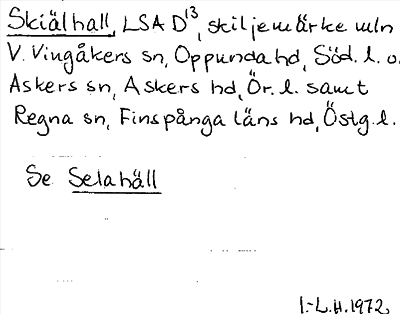 Skiälhall, LSA D13, skiljemärke mln
V. Vingåkers sn, Oppunda hd, Söd. l. o.
Askers sn, Askers hd, Ör. l. samt
Regna sn, Finspånga läns hd, Östg. l.
Se Selahäll
I.-L.H. 1972